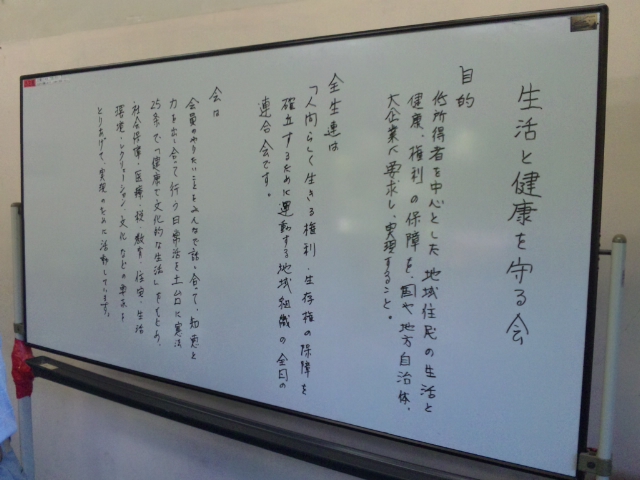 生活と健康を守る会
目的
低所得者を中心とした地域住民の生活と
健康、権利の保障を、国や地方自治体、
大企業に要求し、実現すること。
全生連は
「人間らしく生きる権利・生存権の保障を
確立するために運動する地域組織の全国の
連合会です。
会は
会員のやりたいことをみんなで話し合って、知恵と
力を出し合って行う日常活を土台に憲法
25条で「健康で文化的な生活」をもとめ、
社会保障・医療・税・教育・住宅・生活
環境・レクリェーション・文化などの要求を
とりあげて、実現のために活動しています。